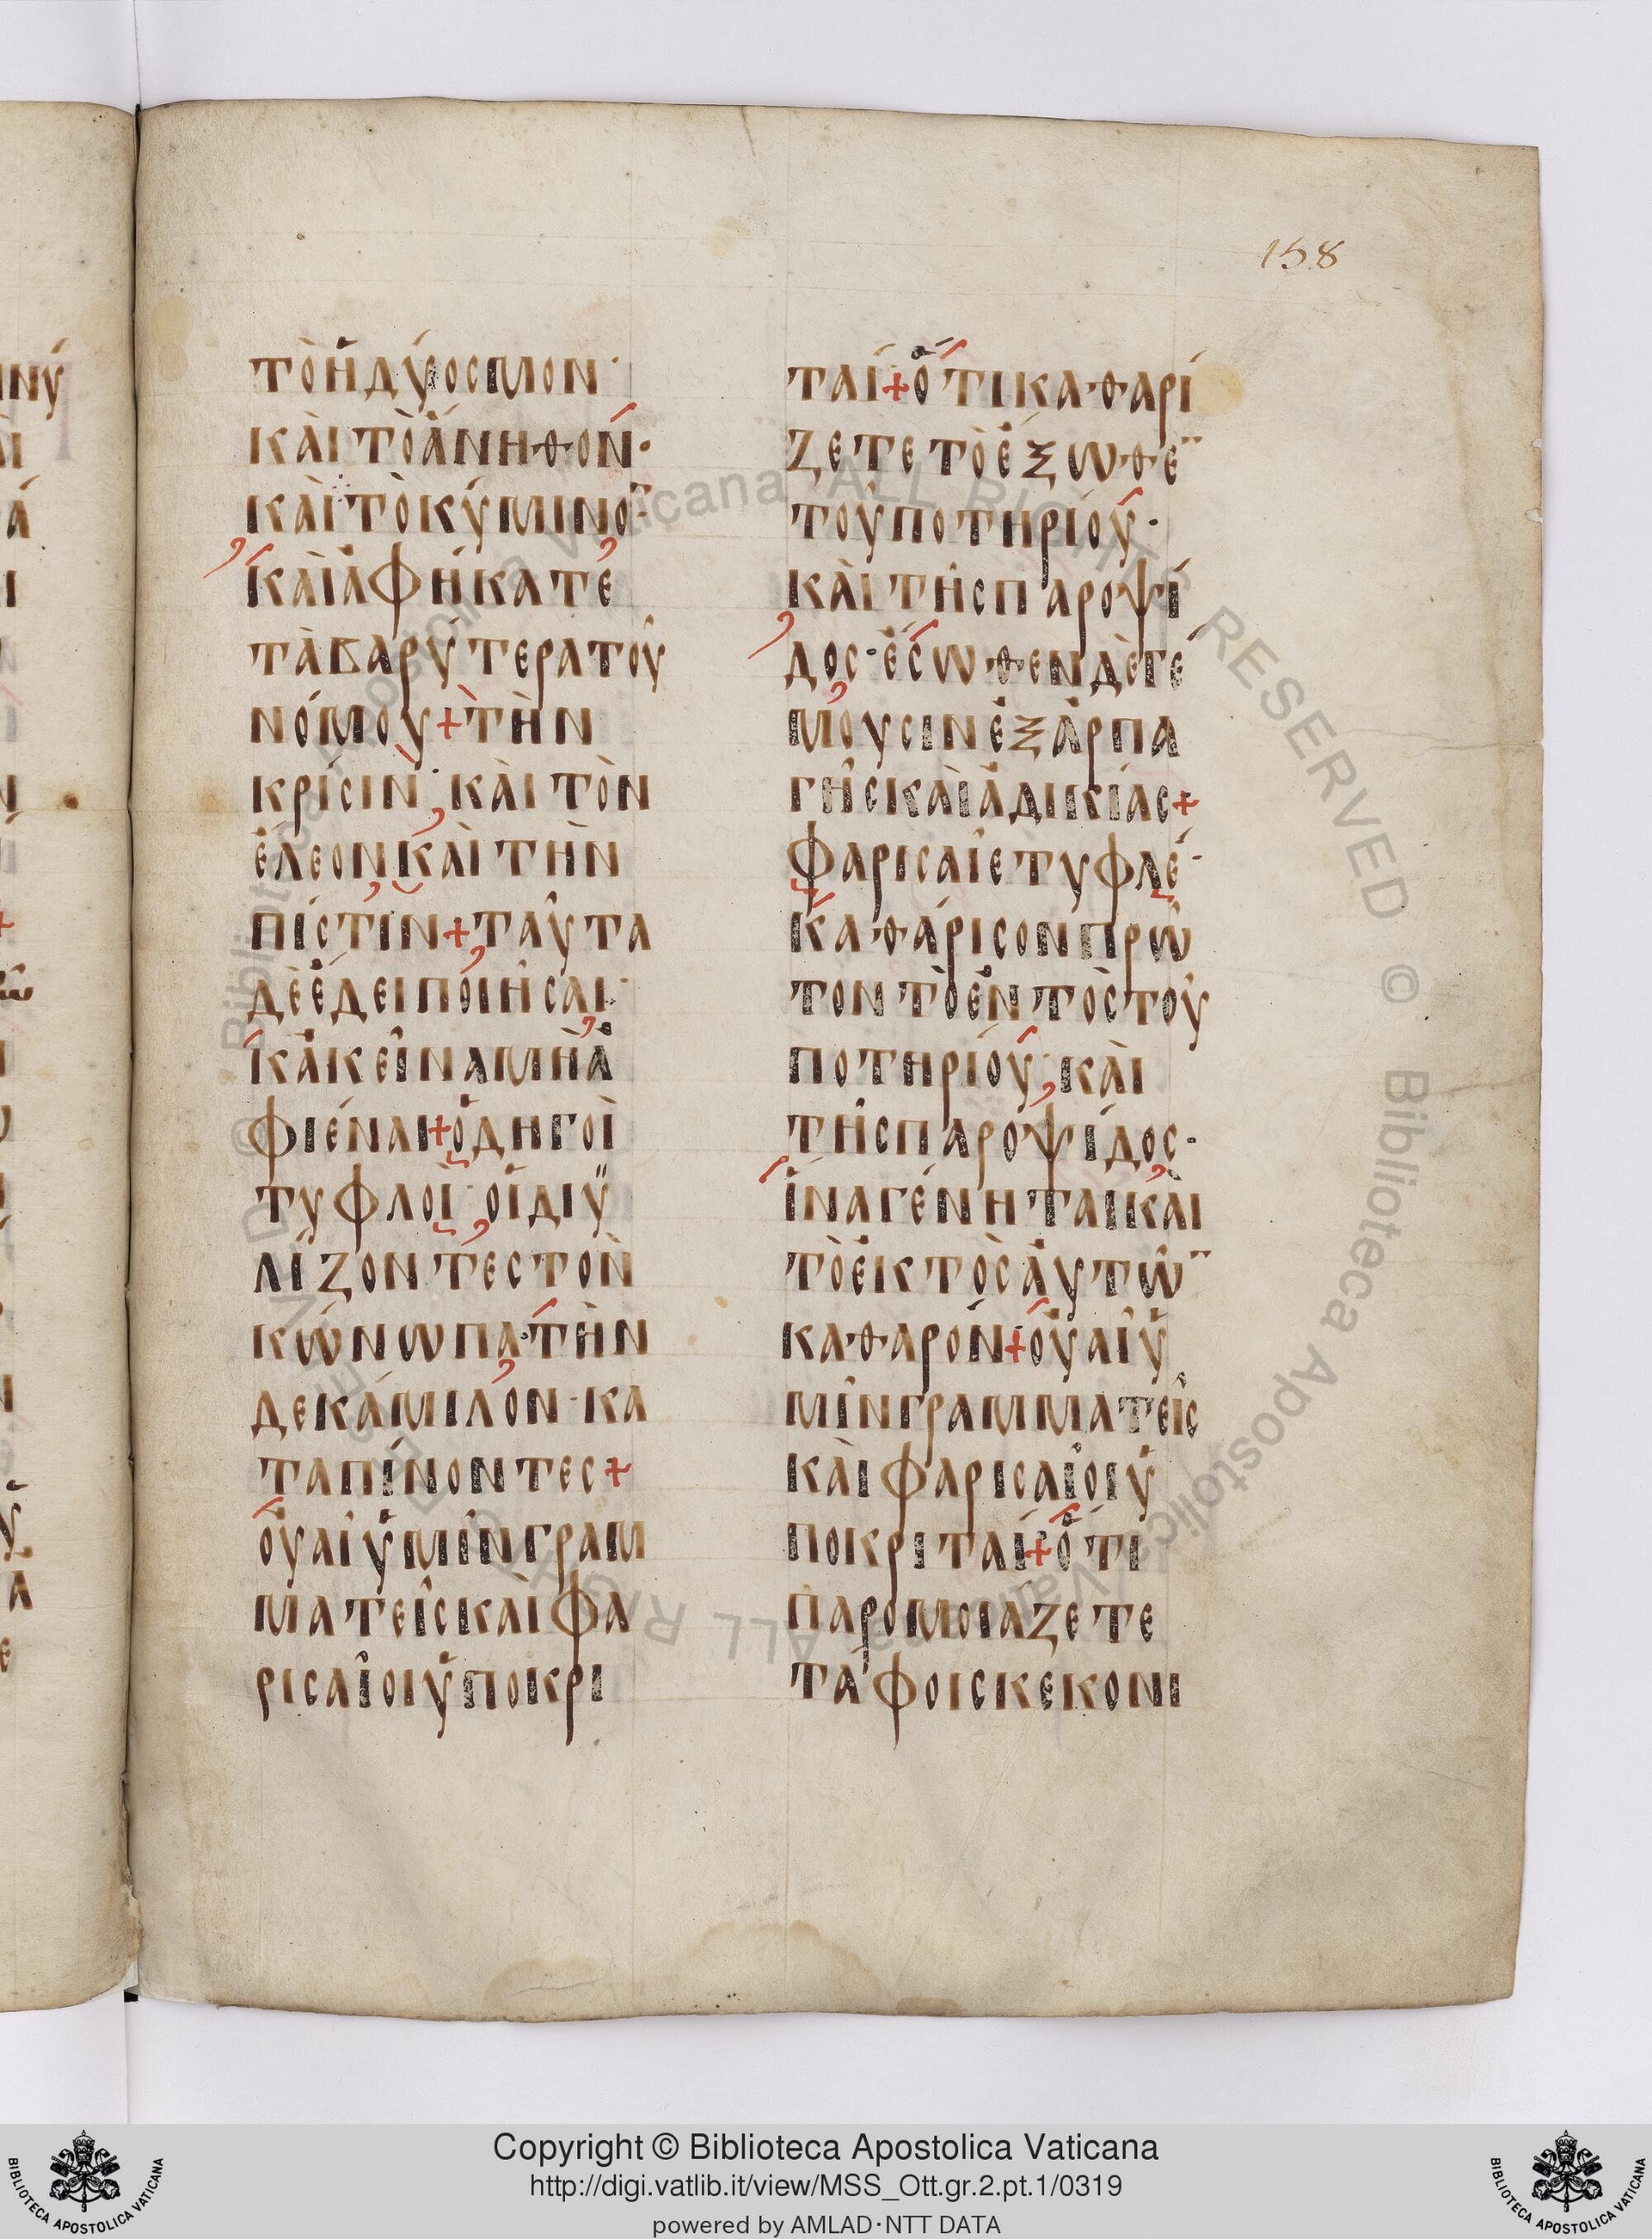 158
ΤῸἩΔΎΟΣΜΟΝ·
ΚᾺΙ ΤῸἌΝΗΘΟΝ·
ΚᾺΙ ΤῸ ΚΎΜΙΝΟ̅·
ΚᾺΙ ἈΦΉΚΑΤΕ
ΤᾺ ΒΑΡΎΤΕΡΑ ΤΟΥ͂
ΝΌΜΟΥ + ΤῊΝ
ΚΡΊΣΙΝ· ΚᾺΙ ΤῸΝ
ἜΛΕΟΝ ΚᾺΙ ΤῊΝ
ΠΊΣΤΙΝ + ΤΑΥ͂ΤΑ
ΔῈ ἜΔΕΙ ΠΟΙΗ͂ΣΑΙ·
ΚἈΚΕΙ͂ΝΑ ΜῊ Ἀ
ΦΙΈΝΑΙ + ὉΔΗΓΟῚ
ΤΥΦΛΟῚ· ΟἹ ΔΙΫ
ΛΊΖΟΝΤΕΣ ΤῸΝ
ΚΏΝΩΠΑ· ΤῊΝ
ΔΕ ΚΆΜΙΛΟΝ· ΚΑ
ΤΑΠΊΝΟΝΤΕΣ +
ΟΥ̓ΑῚ ὙΜΙ͂Ν ΓΡΑΜ
ΜΑΤΕΙ͂Σ ΚᾺΙ ΦΑ
ΡΙΣΑΙ͂ΟΙ ὙΠΟΚΡΙ
ΤΑΊ + ὍΤΙ ΚΑΘΑΡΊ
ΖΕΤΕ ΤῸ ἜΞΩΘΕ̅
ΤΟΥ͂ ΠΟΤΗΡΊΟΥ·
ΚᾺΙ ΤΗ͂Σ ΠΑΡΟΨΊ
ΔΟΣ· ἜΣΩΘΕΝ ΔῈ ΓΈ
ΜΟΥΣΙΝ ἘΞ ἉΡΠΑ
ΓΗ͂Σ ΚᾺΙ ἈΔΙΚΊΑΣ +
ΦΑΡΙΣΑΙ͂Ε ΤΥΦΛΈ·
ΚΑΘΆΡΙΣΟΝ ΠΡΩ͂
ΤΟΝ ΤῸ ἘΝΤῸΣ ΤΟΥ͂
ΠΟΤΗΡΊΟΥ· ΚᾺΙ
ΤΗ͂Σ ΠΑΡΟΨΊΔΟΣ·
ἽΝΑ ΓΈΝΗΤΑΙ ΚᾺΙ
ΤῸ ἘΚΤῸΣ ἈΥΤΩ͂̅
ΚΑΘΑΡΌΝ + ΟΥ̓ΑῚ Ὑ
ΜΙ͂Ν ΓΡΑΜΜΑΤΕΙ͂Σ
ΚᾺΙ ΦΑΡΙΣΑΙ͂ΟΙ Ὑ
ΠΟΚΡΙΤΑΊ + ὍΤΙ
ΠΑΡΟΜΟΙΆΖΕΤΕ
ΤΆΦΟΙΣ ΚΕΚΟΝΙ
Copyright © Biblioteca Apostolica Vaticana
http://digi.vatlib.it/view/MSS_Ott.gr.2.pt.1/0319
powered by AMLAD·NTT DATA
BIBLIOTECA APOSTOLICA VATICANA
BIBLIOTECA APOSTOLICA VATICANA